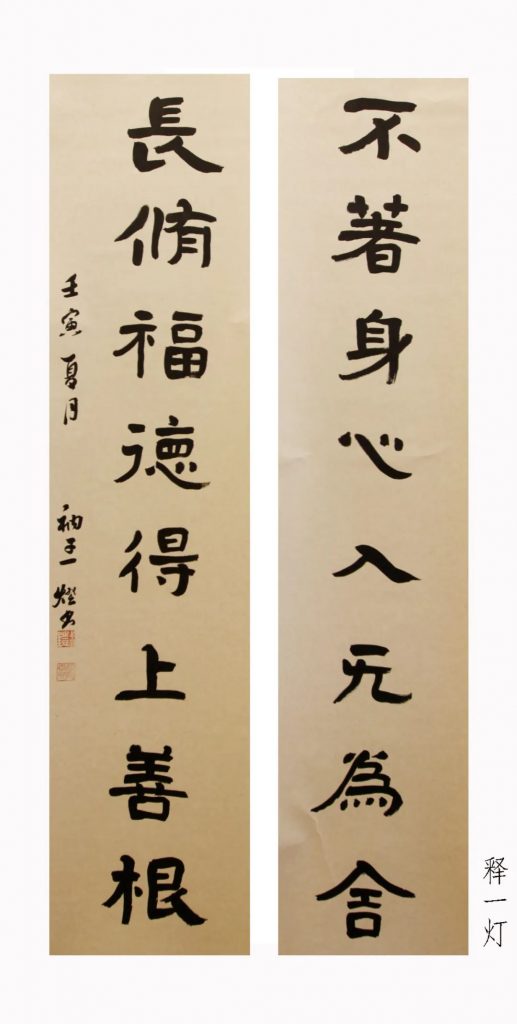 不著身心入无為舍
長脩福德得上善根
壬寅夏月 衲子一燈书
释一灯